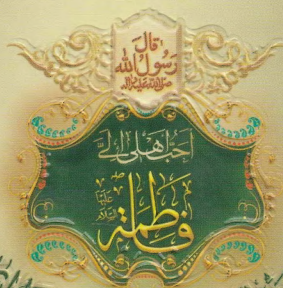 قال
رسول الله
صلی الله علیه و آله
أحب أهلي إلي
فاطمة
علیها السلام